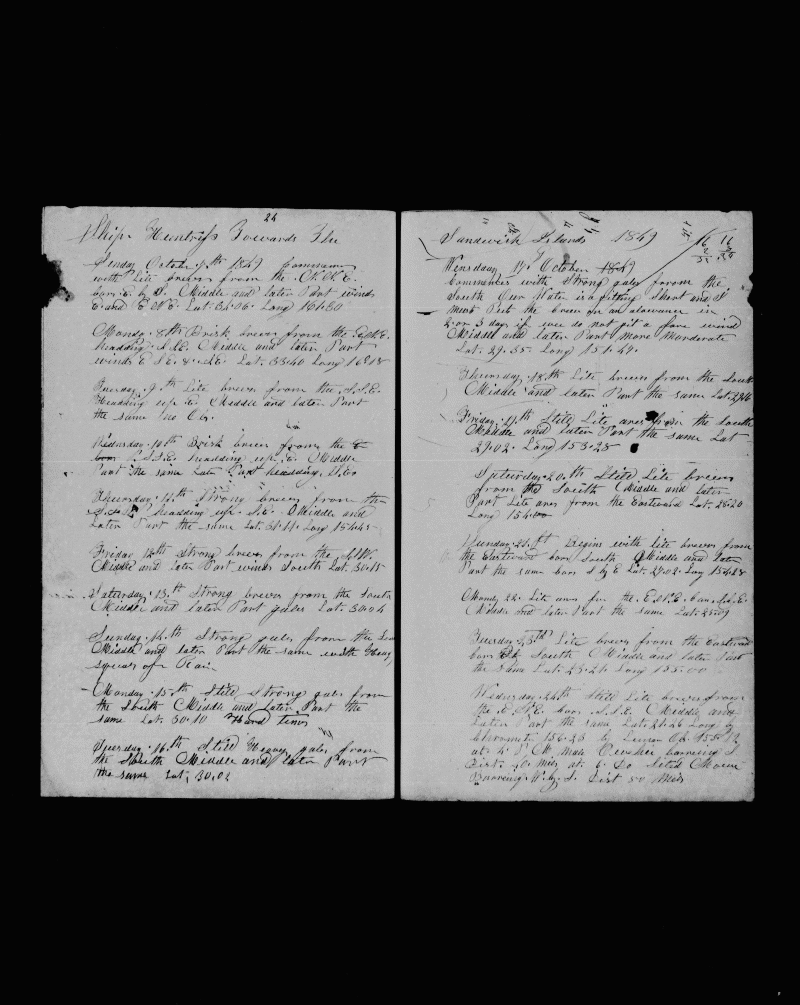 24
Ship Huntress Towards The
Sunday October 7th 1849 Commences
with Lite breses from the N.N.E.
bore E. by S. Middle and later Part winds
E and E N E. Lat. 34.06. Long 161.30
Monday 8th Brisk brees from the
heading Middle and later Part
winds E N E. & N.E. Lat. 33.40 Long
Tuesday 9th Lite brees from the S.S.E.
Heading up E Middle and later Part
the same no Ob.
Wedsurday 10th Brisk brees from the E
born S.S.E. heading up E. Middle
Part the same Later Part heading
Thuersday 11th Strong brees from the
heading up S.E. Middle and
Later Part the same Lat. 31.11. Long 154.45
Friday 12th Strong brees from the
Middle and later Part winds South Lat. 30.15
Saturday 13th Strong brees from the South
Middle and later Part gales Lat. 30.04
Sunday 14th Strong gales from the
Middle and later Part the same with Heavy
squalls of Rain
Monday 15th Still Strong gales from
the South Middle and Later Part the
same Lat. 30.10 Hard times
Tuesday 16th Still Heavy gales from
the South Middle and later Part
the same Lat. 30.02
Sandwich Islands 1849
Wensday 17th October 1849
Commences with Strong gales from the
South Our Water is a gitting Short and I
must Put the Crew on an alowance in
2 or 3 days if wee do not git a fare wind
Middle and later Part More Moderate
Lat. 29.55. Long 151.49.
Thursday 18th Lite brees from the South
Middle and later Part the same Lat.
Friday 19th Still Lite ares from the South
Middle and later Part the same Lat
29.02. Long 153.28
Saturday 20th Still Lite brees
from the South Middle and later
Part Lite ares from the Eastward Lat. 28.20
Long 154.00
Sunday 21st Begins with lite breses from
the Eastward born South Middle and later
Part the same born S by E Lat. 27.02. Long 154.28
Monday 22. Lite ares from the E.N.E.
Middle and later Part the same Lat.
Tuesday 23th Lite brees from the Eastward
born South Middle and later Part
the same Lat. 23.21. Long 155.00
Wedsurday 24th Still Lite brees from
the E.N.E. born S.S.E. Middle and
Later Part the same Lat. 21.26 Long by
Chronometer 156.26 by Lunar Ob. 155.12
at 4 P.M. Made Owhee barreing S
Dist. 70 Miles at 6 Do Sited Mowee
Barreing W. by S. Dist 50 Miles